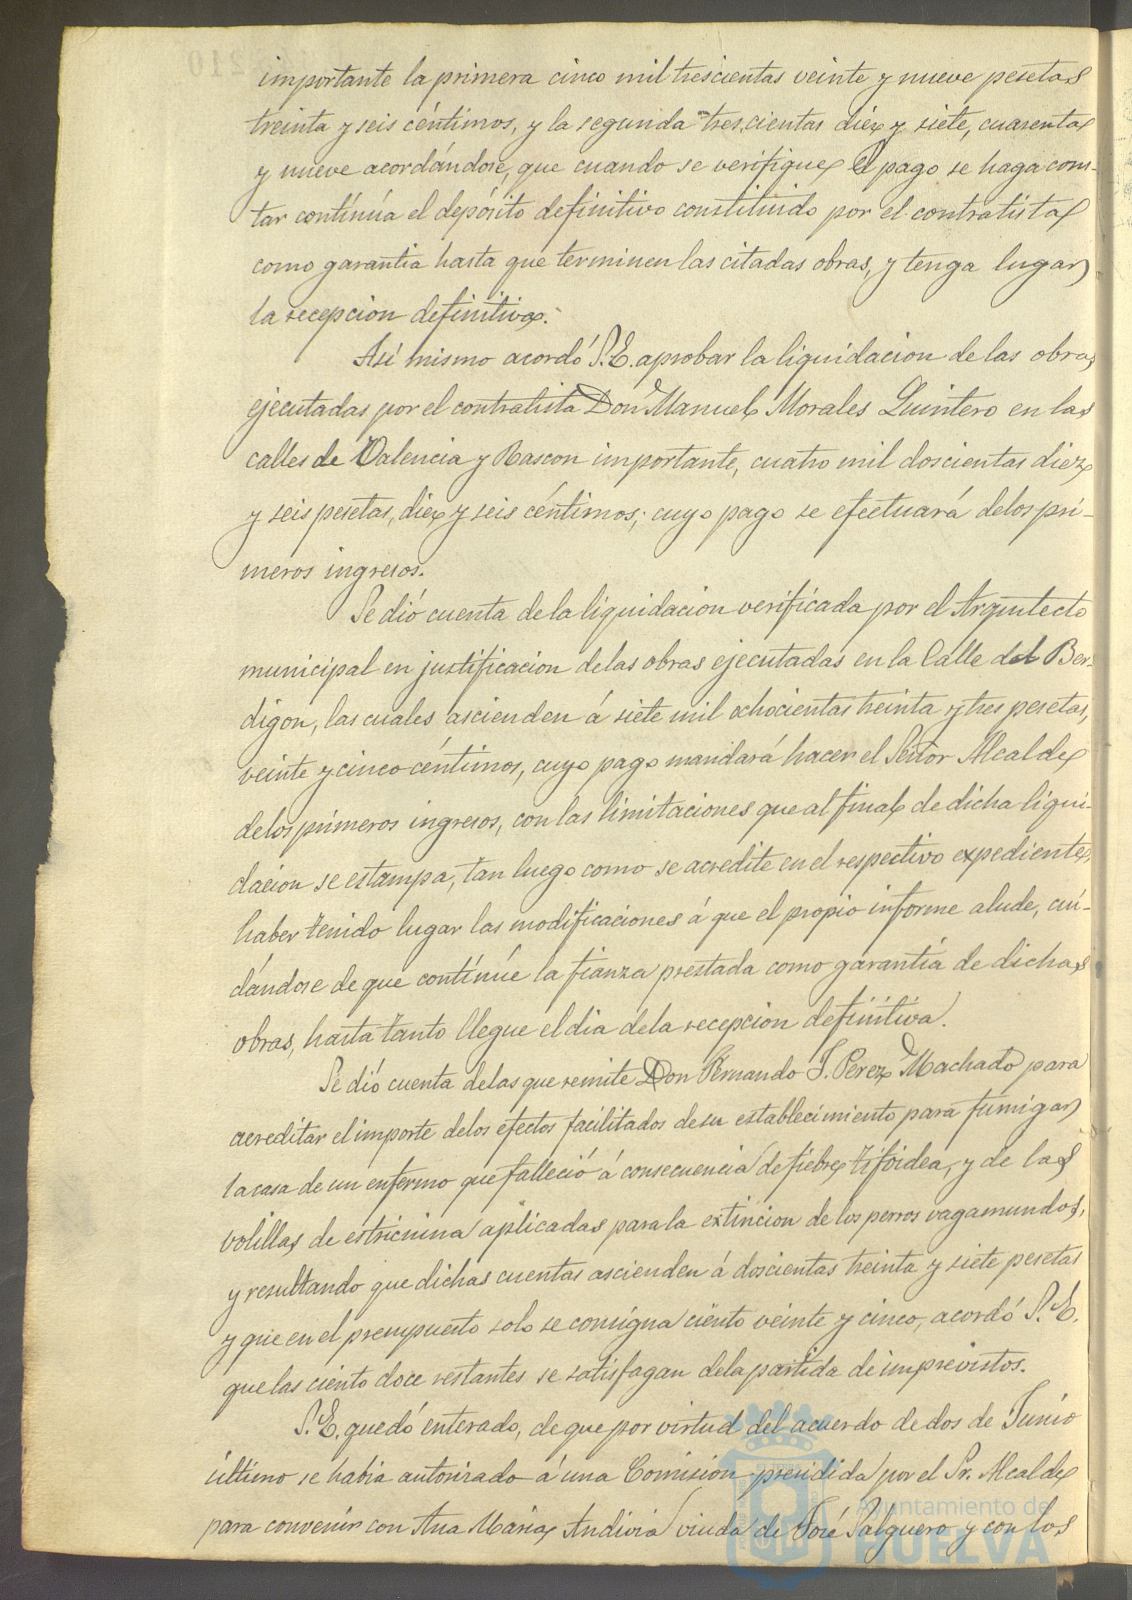 importante la primera cinco mil trescientas veinte y nueve pesetas
treinta y seis céntimos, y la segunda trescientas diez y siete, cuarenta
y nueve acordándose, que cuando se verifique el pago se haga cons-
tar continúa el depósito definitivo constituido por el contratista
como garantia hasta que terminen las citadas obras, y tenga lugar
la recepcion definitiva.
Asi mismo acordó S.E. aprobar la liquidacion de las obras
ejecutadas por el contratista Don Manuel Morales Quintero en las
calles de Valencia y Rascon importante, cuatro mil doscientas diez
y seis pesetas, diez y seis céntimos; cuyo pago se efectuará de los pri-
meros ingresos.
Se dió cuenta de la liquidacion verificada por el Arquitecto
municipal en justificacion de las obras ejecutadas en la Calle del Ber-
digon, las cuales ascienden á siete mil ochocientas treinta y tres pesetas,
veinte y cinco céntimos, cuyo pago mandará hacer el Señor Alcalde
de los primeros ingresos, con las limitaciones que al final de dicha liqui-
dacion se estampa, tan luego como se acredite en el respectivo expediente,
haber tenido lugar las modificaciones á que el propio informe alude, cui-
dándose de que continúe la fianza prestada como garantía de dichas
obras, hasta tanto llegue el dia de la recepcion definitiva.
Se dió cuenta de las que remite Don Fernando J. Perez Machado para
acreditar el importe de los efectos facilitados de su establecimiento para fumigar
la casa de un enfermo que falleció á consecuencia de fiebre tifoidea, y de las
volillas de estricnina aplicadas para la extincion de los perros vagamundos,
y resultando que dichas cuentas ascienden á doscientas treinta y siete pesetas
y que en el presupuesto solo se consigna ciento veinte y cinco, acordó S.E.
que las ciento doce restantes se satisfagan de la partida de imprevistos.
S.E. quedó enterado, de que por virtud del acuerdo de dos de Junio
último se habia autorizado á una Comision presidida por el Sr. Alcalde
para convenir con Ana Maria Andivia viuda de José Salguero y con los
Ayuntamiento de
HUELVA